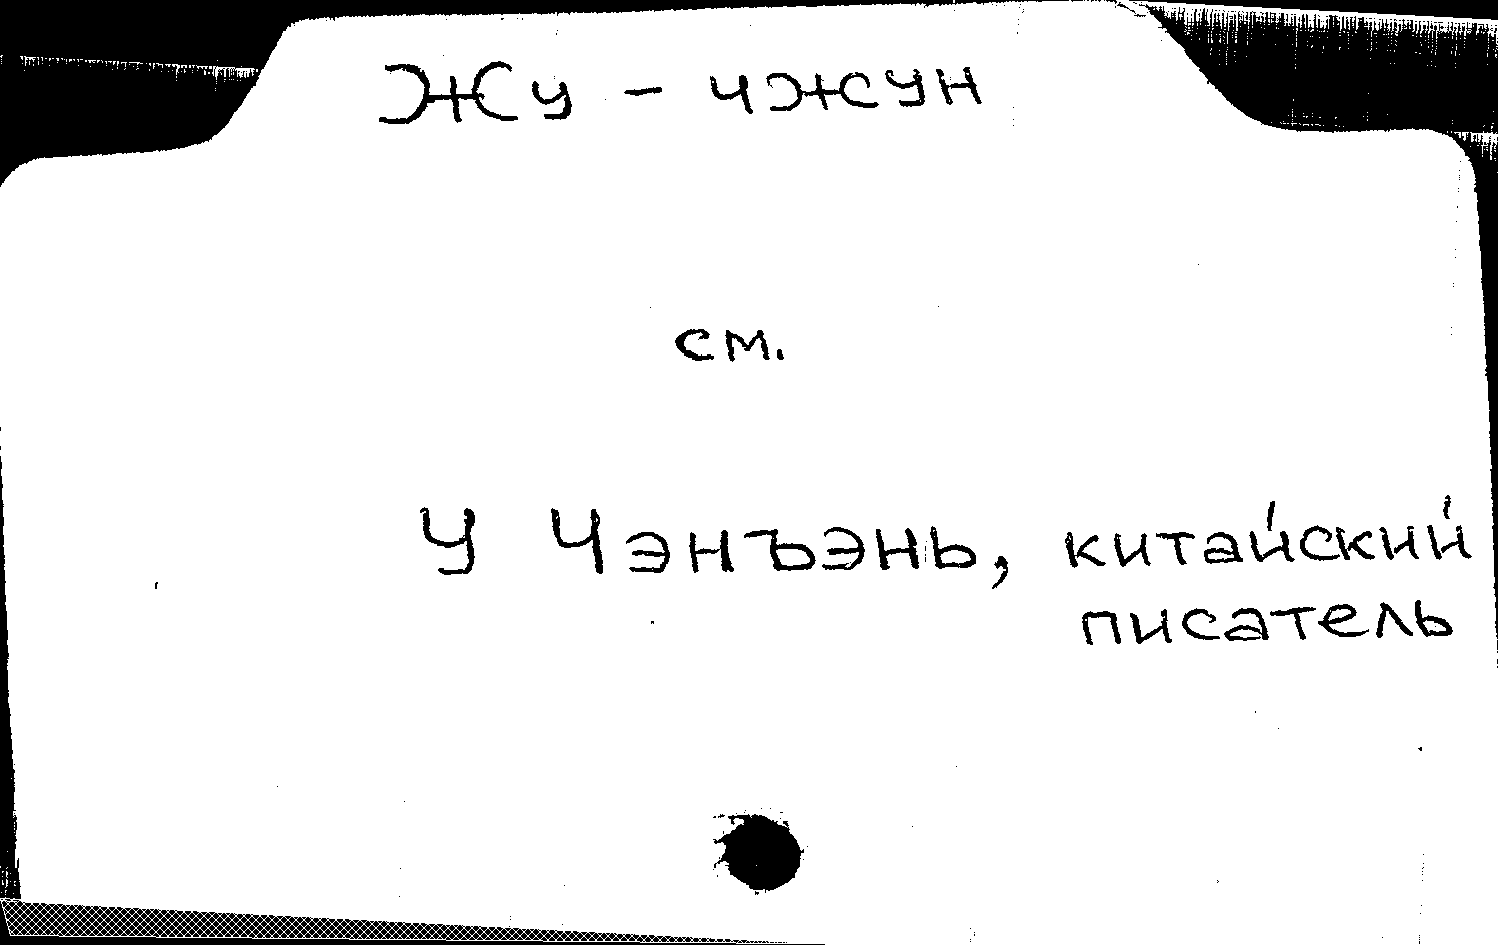 Жу - чжун
см.
У Чэнъэнь, китайский
писатель